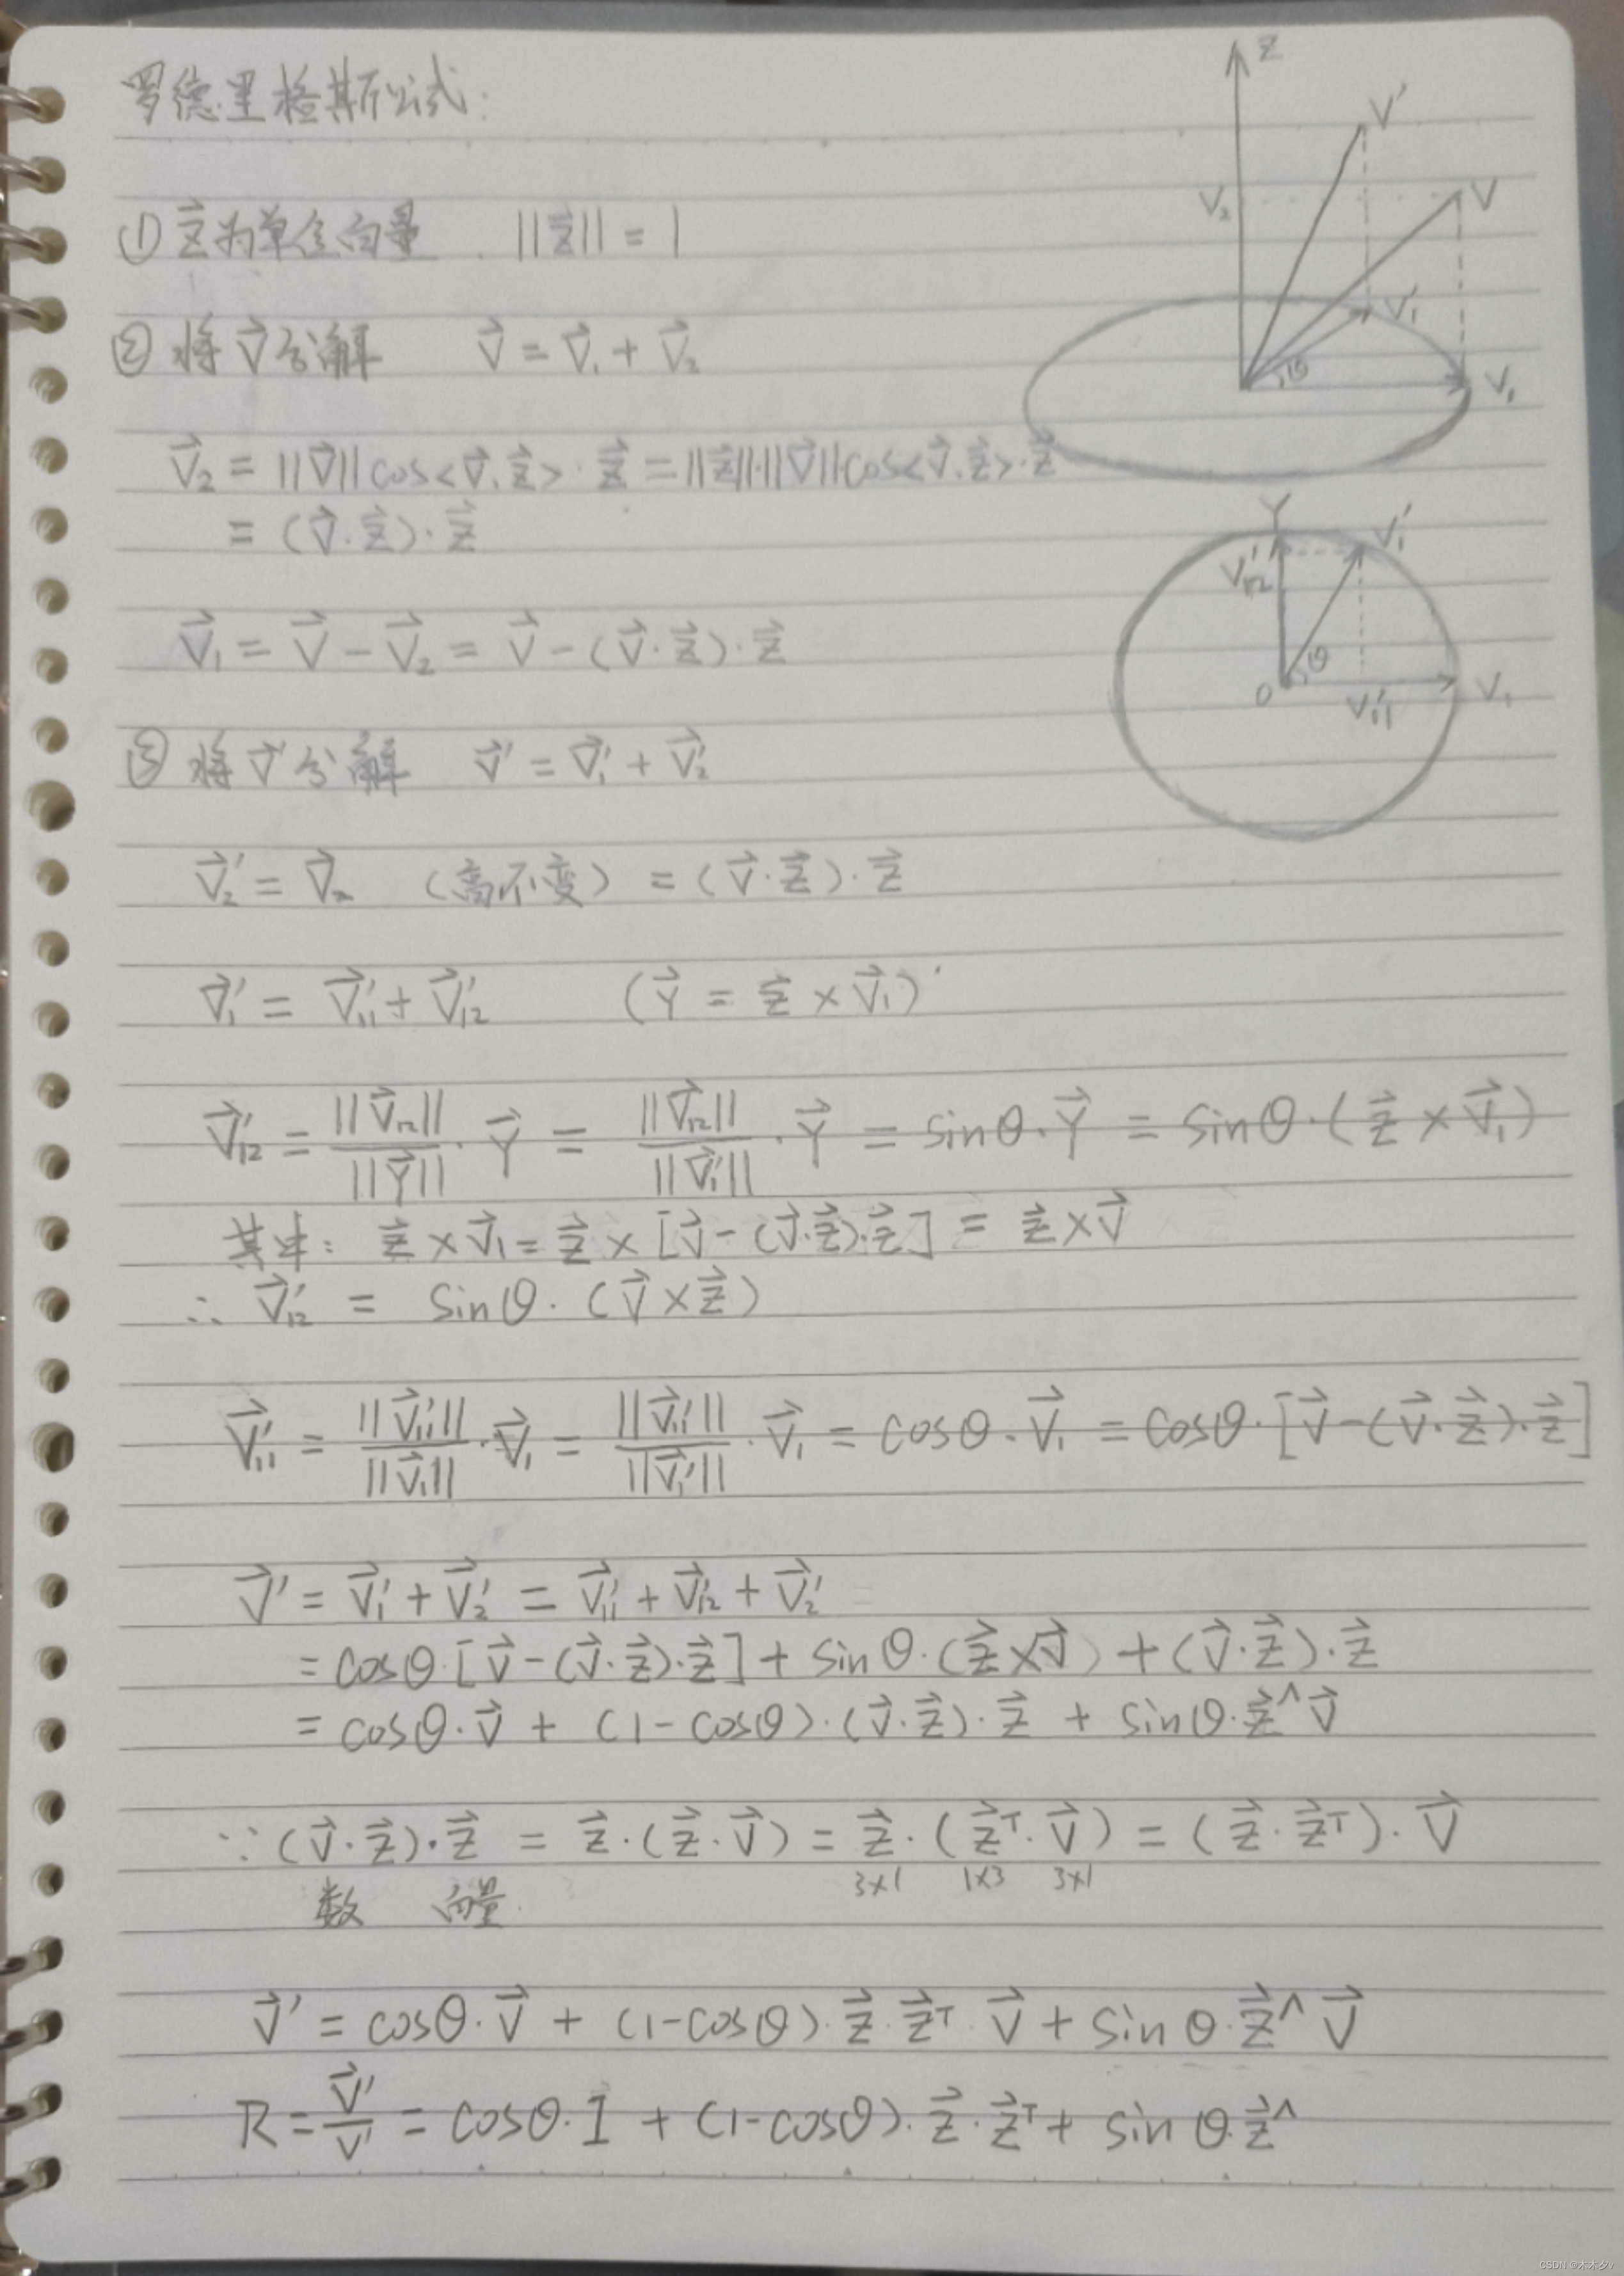 罗德里格斯公式:
Z
V'
V₂
V
V₁'
θ
V₁
① z⃗为单位向量 . ||z⃗|| = 1
② 将 v⃗ 分解 v⃗ = v⃗₁ + v⃗₂
v⃗₂ = ||v⃗|| cos<v⃗.z⃗> · z⃗ = ||z⃗||·||v⃗|| cos<v⃗.z⃗> · z⃗
= (v⃗·z⃗)·z⃗
Y
V₁₂'
V₁'
θ
O
V₁₁'
V₁
v⃗₁ = v⃗ − v⃗₂ = v⃗ − (v⃗·z⃗)·z⃗
③ 将 v⃗' 分解 v⃗' = v⃗₁' + v⃗₂'
v⃗₂' = v⃗₂ (高不变) = (v⃗·z⃗)·z⃗
v⃗₁' = v⃗₁₁' + v⃗₁₂' (Y⃗ = z⃗ × v⃗₁)
v⃗₁₂' = ||v⃗₁₂||/||Y⃗|| · Y⃗ = ||v⃗₁₂||/||v⃗₁'|| · Y⃗ = sinθ·Y⃗ = sinθ·(z⃗ × v⃗₁)
其中: z⃗ × v⃗₁ = z⃗ × [v⃗ − (v⃗·z⃗)·z⃗] = z⃗ × v⃗
∴ v⃗₁₂' = sinθ·(v⃗ × z⃗)
v⃗₁₁' = ||v⃗₁₁'||/||v⃗₁|| · v⃗₁ = ||v⃗₁₁'||/||v⃗₁'|| · v⃗₁ = cosθ·v⃗₁ = cosθ·[v⃗ − (v⃗·z⃗)·z⃗]
v⃗' = v⃗₁' + v⃗₂' = v⃗₁₁' + v⃗₁₂' + v⃗₂'
= cosθ·[v⃗ − (v⃗·z⃗)·z⃗] + sinθ·(z⃗ × v⃗) + (v⃗·z⃗)·z⃗
= cosθ·v⃗ + (1−cosθ)·(v⃗·z⃗)·z⃗ + sinθ·z⃗^ v⃗
∵ (v⃗·z⃗)·z⃗ = z⃗·(z⃗·v⃗) = z⃗·(z⃗ᵀ·v⃗) = (z⃗·z⃗ᵀ)·v⃗
数 向量 3×1 1×3 3×1
v⃗' = cosθ·v⃗ + (1−cosθ)·z⃗·z⃗ᵀ·v⃗ + sinθ·z⃗^ v⃗
R = v⃗'/v = cosθ·I + (1−cosθ)·z⃗·z⃗ᵀ + sinθ·z⃗^
CSDN @木木夕v